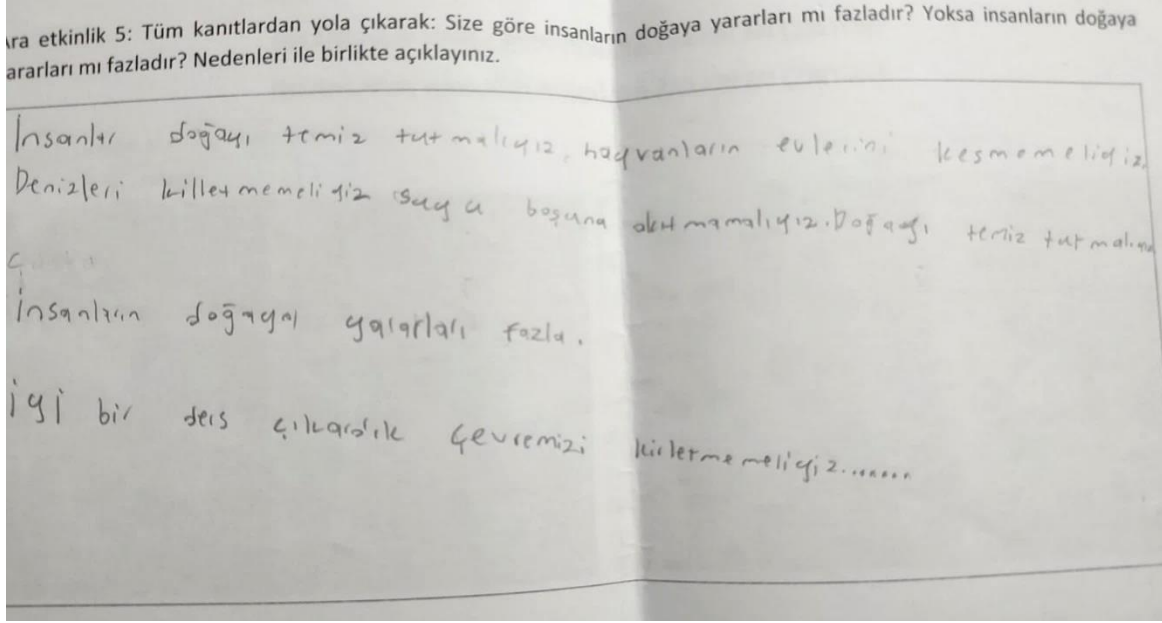 ra etkinlik 5: Tüm kanıtlardan yola çıkarak: Size göre insanların doğaya yararları mı fazladır? Yoksa insanların doğaya
ararları mı fazladır? Nedenleri ile birlikte açıklayınız.
İnsanlar doğayı temiz tutmalıyız, hayvanların evlerini kesmemeliyiz.
Denizleri killetmemeliyiz suyu boşuna akıtmamalıyız. Doğayı temiz tutmalıyız
İnsanların doğaya yararları fazla.
İyi bir ders çıkardık çevremizi kirletmemeliyiz.......